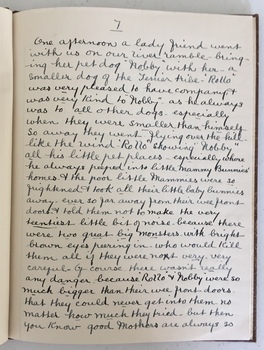 7
One afternoon a lady friend went
with us on our river ramble - bring-
ing her pet dog "Nobby" with her - a
smaller dog of the Terrier tribe. "Rollo"
was very pleased to have company &
was very kind to "Nobby" as he always
was to all other dogs. especially
when they were smaller than himself.
So away they went "flying over the hill
like the wind" "Rollo" showing "Nobby"
all his little pet places - especially where
he always peeped into little Mammy Bunnies'
homes. & the poor little Mammies were so
frightened & took all their little baby bunnies
away - ever so far away from their wee front
doors & told them not to make the very
teentiest little bit of noise because there
were two great big monsters with bright
brown eyes peering in who would kill
them all if they were not very very
careful. Of course there wasn't really
any danger because Rollo & Nobby were so
much bigger than their wee front doors
that they could never get into them no
matter how much they tried. but then
you know good Mothers are always so